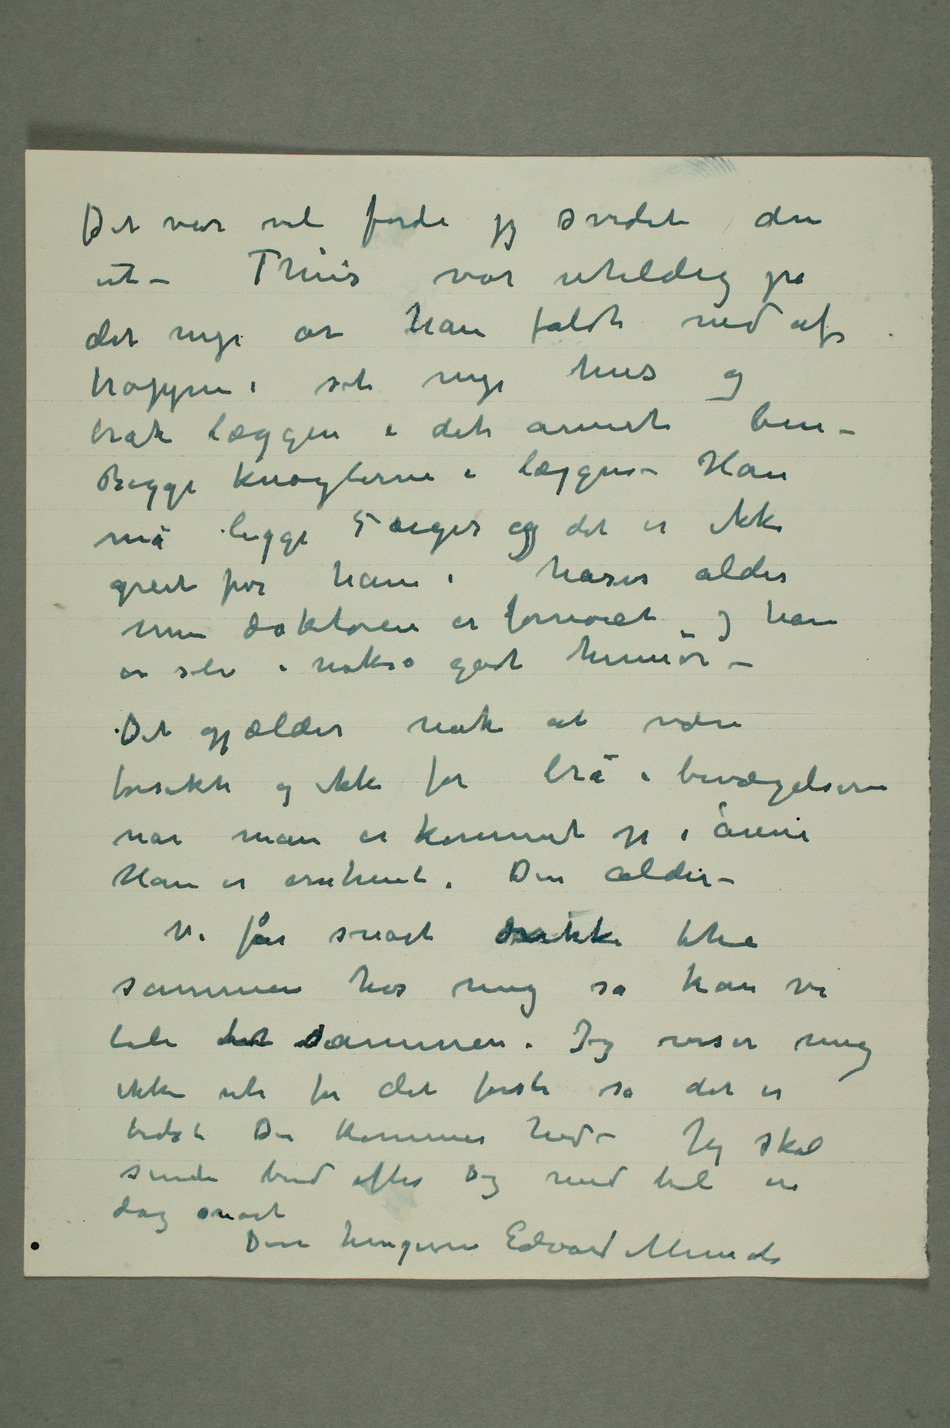 Det var vel fordi jg svedete den
ut – Thiis var uheldig på
det nye år han faldt ned af
trappen i sit nye hus og
brak læggen i det annet ben –
Begge knoglerne i læggen – Han
må ligge 5 uger og det er ikke
greit for ham i hans alder
men doktoren er fornøiet og han
er selv i nokså godt humør –
Det gjælder nok at være
forsikti og ikke for brå i bevægelserne
når man er kommet op i årene
Han er omtrent i Din alder –
Vi får snart drikke the
sammen hos mig så kan vi
tale sammen. Jeg viser mig
ikke ute for det første så det er
bedst Du kommer hid – Jeg skal
sende bud efter Dig med bil en
dag snart
Din hengivne Edvard Munch